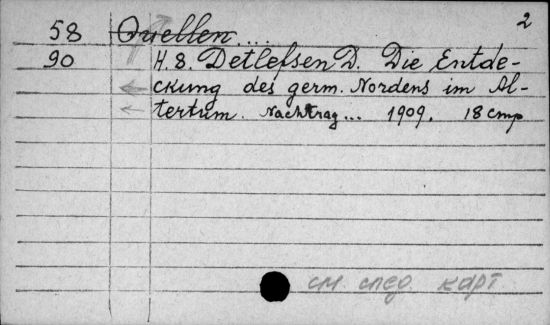 2
58 Quellen...
90 H. 8. Detlefsen D. Die Entde-
ckung des germ. Nordens im Al-
tertum. Nachtrag... 1909. 18 cmp
см. след. карт